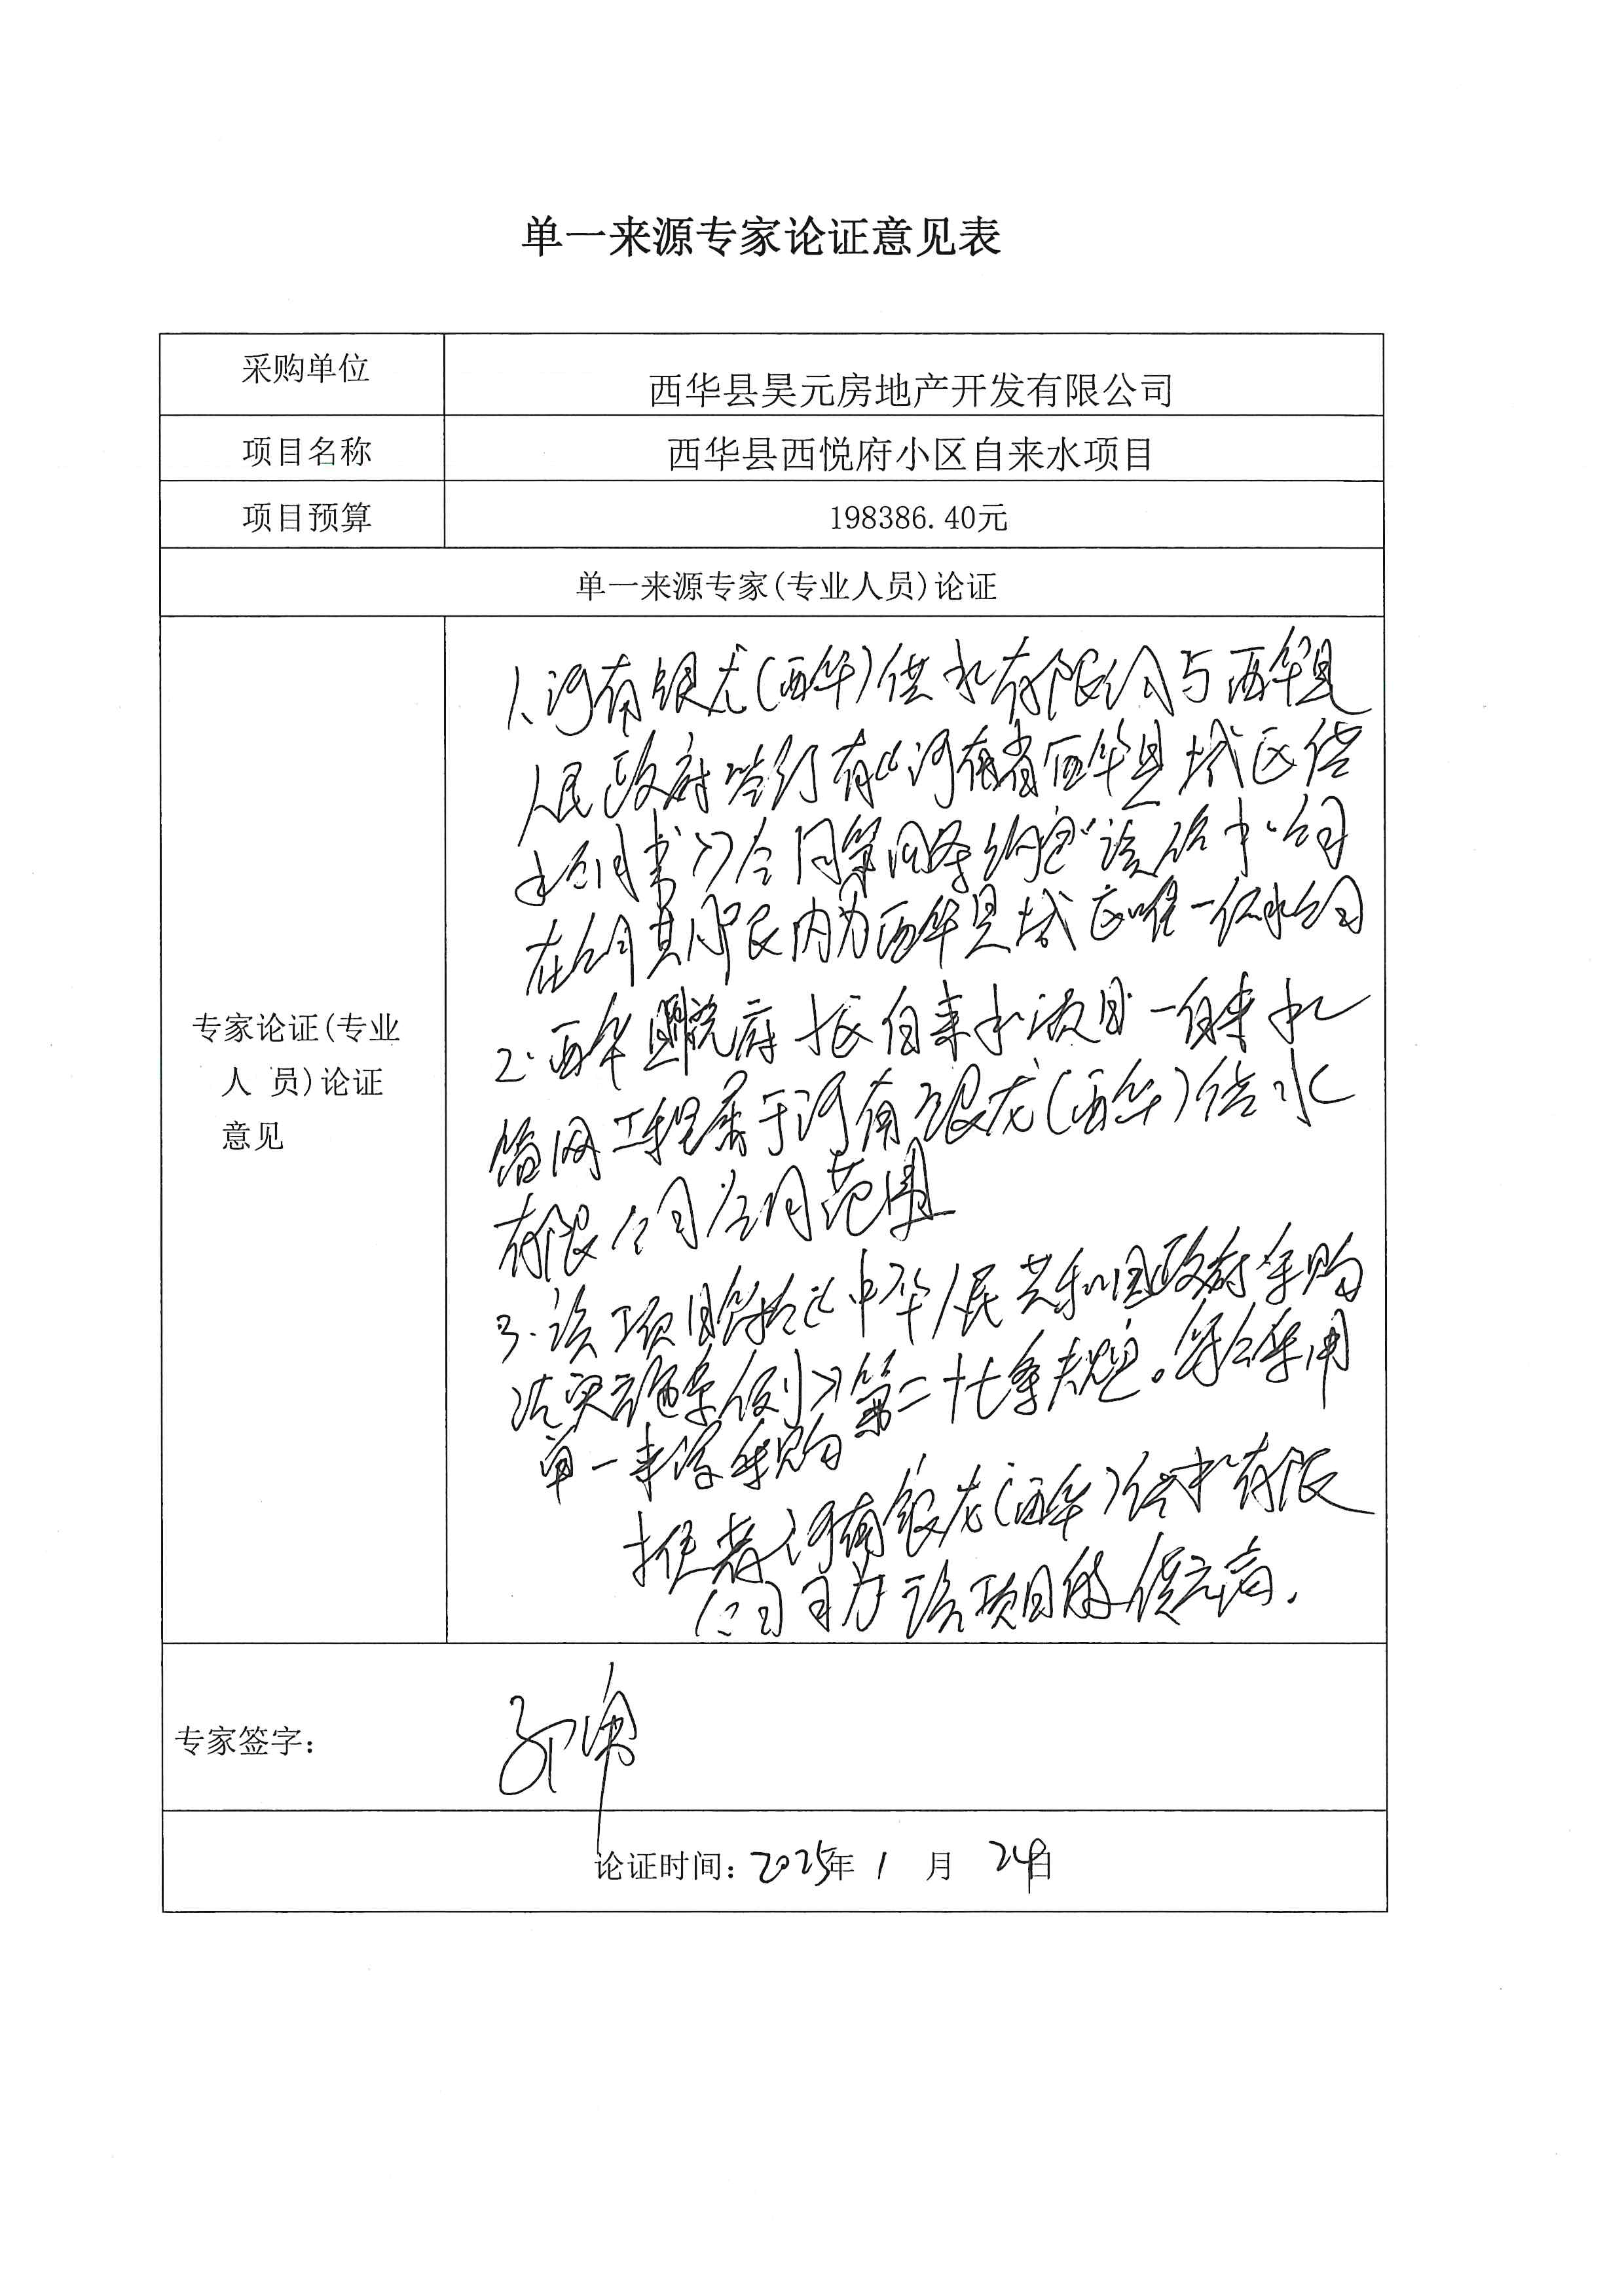 单一来源专家论证意见表
采购单位
西华县昊元房地产开发有限公司
项目名称
西华县西悦府小区自来水项目
项目预算
198386.40元
单一来源专家(专业人员)论证
专家论证(专业
人 员)论证
意见
1、河南银龙(西华)供水有限公司与西华县
人民政府签订有《河南省西华县城区供
水合同书》合同第四条约定"该供水公司
在合同期限内为西华县城区唯一供水公司
2.西华县西悦府小区自来水项目一自来水
管网工程属于河南银龙(西华)供水
有限公司合同范围
3.该项目符合《中华人民共和国政府采购
法实施条例》第二十七条规定。符合采用
单一来源采购
推荐河南银龙(西华)供水有限
公司为该项目的供应商.
专家签字:
论证时间:2025年 1 月 24日